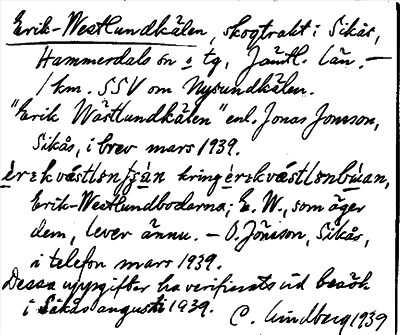 Erik-Westlundkälen, skogtrakt i Sikås,
Hammerdals sn o tg, Jämtl. län. —
1 km. SSV om Nysundkälen.
"Erik Wästlundkälen" enl. Jonas Jonsson,
Sikås, i brev mars 1939.
kring
Erik-Westlundbodarna; E. W., som äger
dem, lever ännu. — O. Jönsson, Sikås,
i telefon mars 1939.
Dessa uppgifter ha verifierats vid besök
i Sikås augusti 1939. C. Lindberg 1939